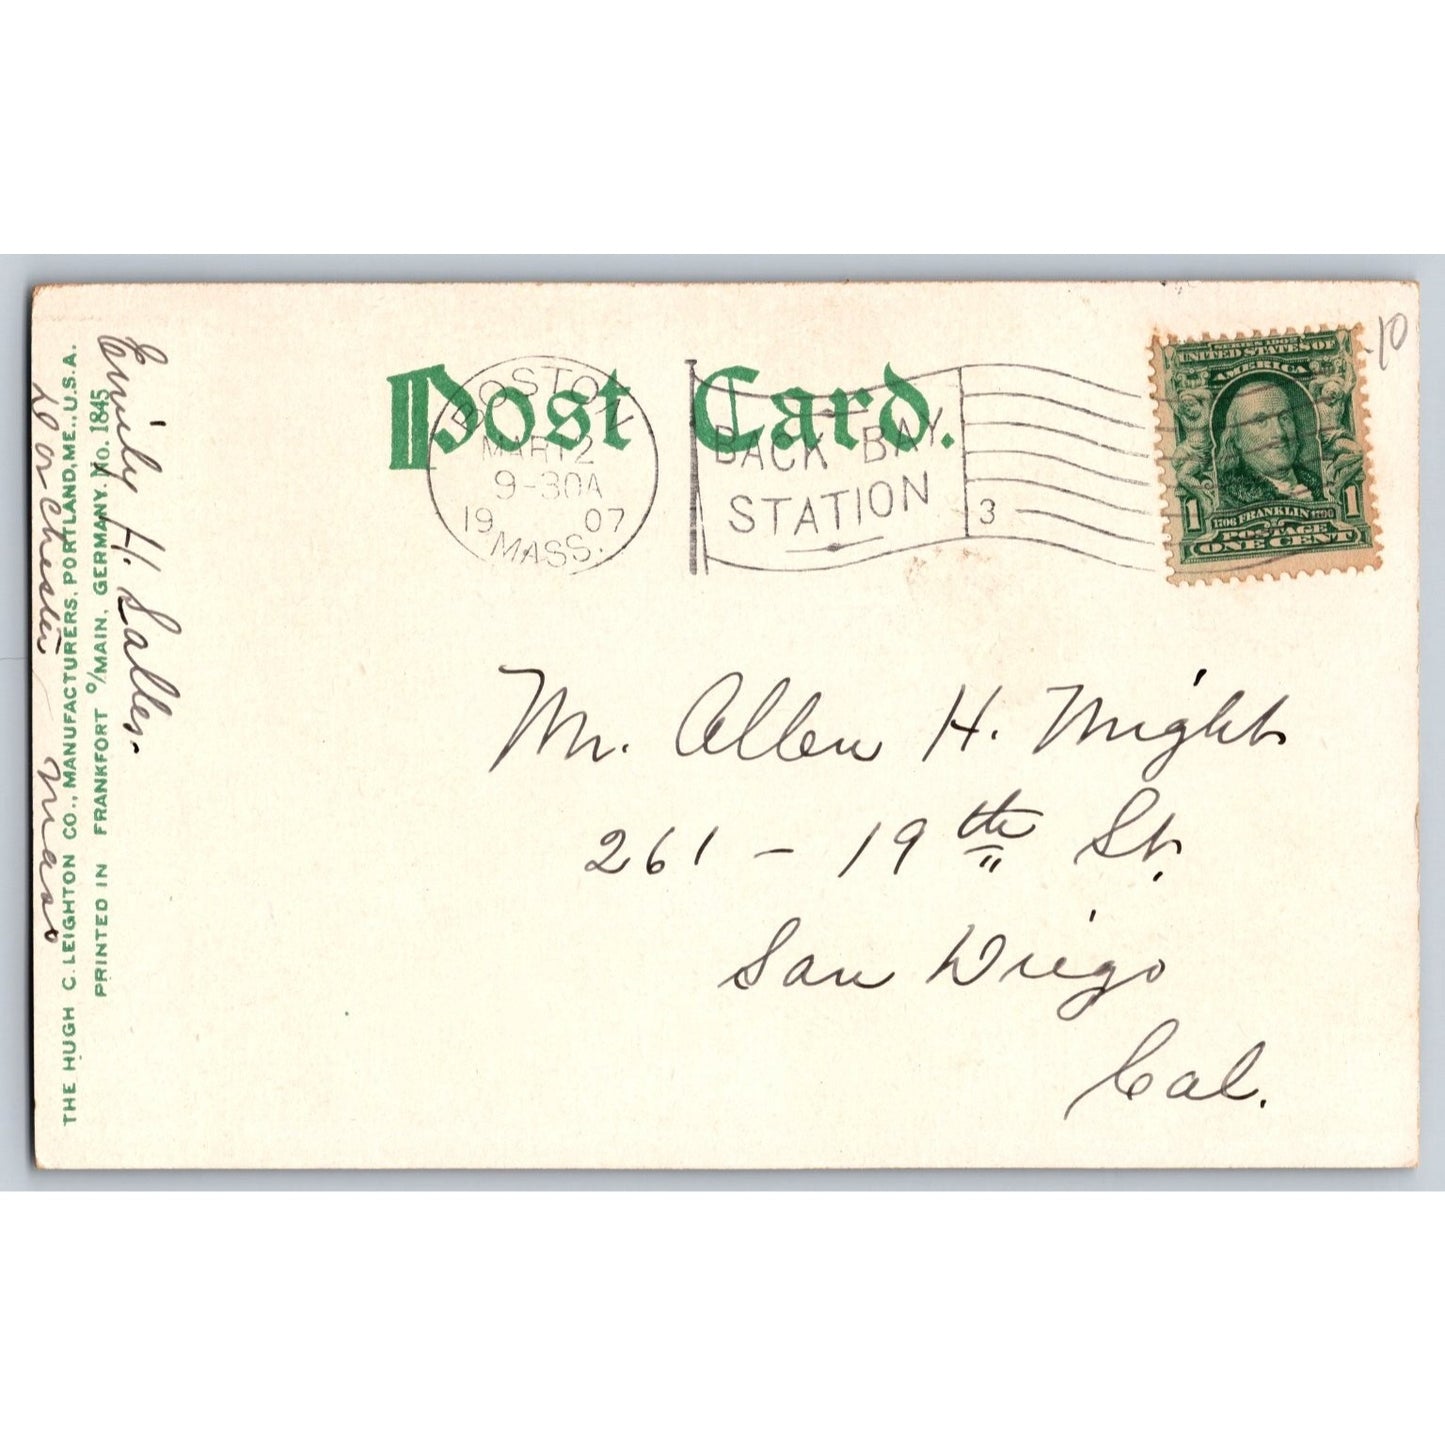 Post Card.
BOSTON
MAR 12
9-30A
1907
MASS.
BACK BAY
STATION
3
SERIES 1902
UNITED STATES OF
AMERICA
1 1
1706 FRANKLIN 1790
POSTAGE
ONE CENT
10
Mr. Allen H. Wright
261 - 19th St.
San Diego
Cal.
Emily H. Salles.
Dorchester Mass
THE HUGH C. LEIGHTON CO., MANUFACTURERS, PORTLAND, ME., U.S.A.
PRINTED IN FRANKFORT O/MAIN, GERMANY. No. 1845